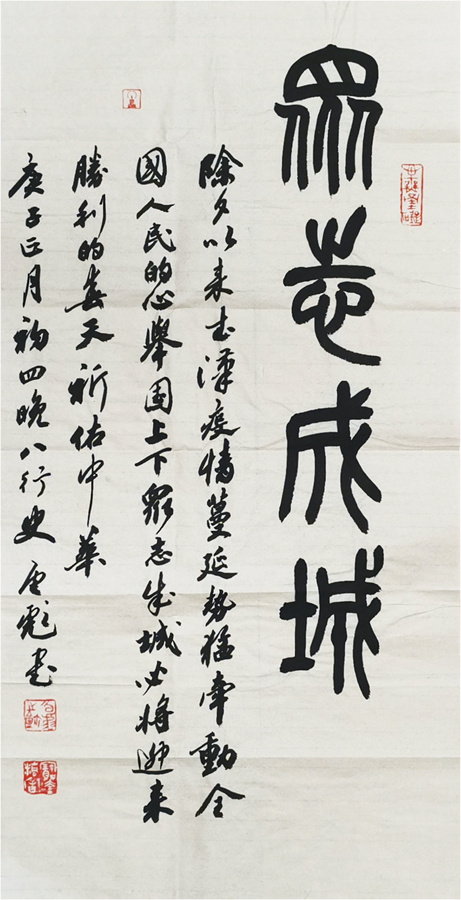 眾志成城
除夕以来武漢疫情蔓延势猛牵動全
國人民的心舉国上下眾志成城必将迎来
勝利的春天祈佑中華
庚子正月初四晚八行史
彪书